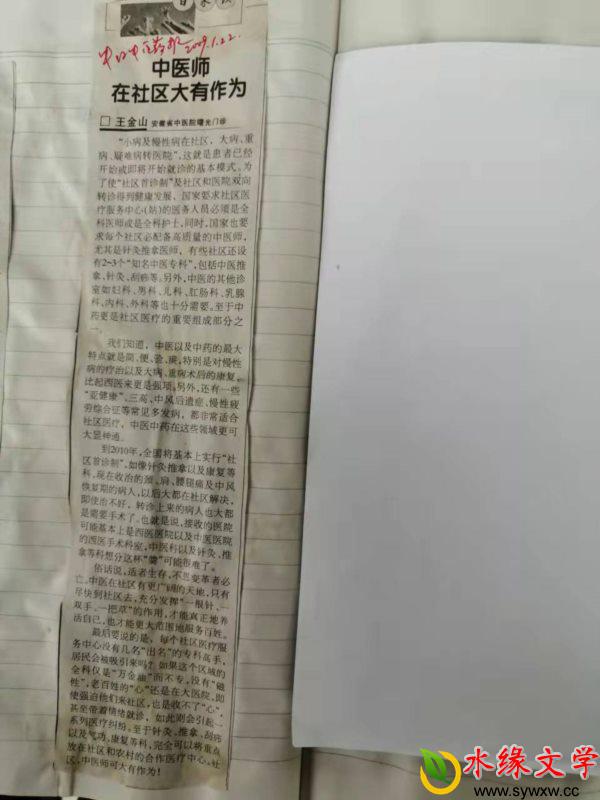 中国中医药报 2009.1.22.
中医师
在社区大有作为
□ 王金山 安徽省中医院曙光门诊
“小病及慢性病在社区，大病、重
病、疑难病转医院”，这就是患者已经
开始或即将开始就诊的基本模式。为
了使“社区首诊制”及社区和医院双向
转诊得到健康发展，国家要求社区医
疗服务中心(站)的医务人员必须是全
科医师或是全科护士，同时，国家也要
求每个社区必配备高质量的中医师，
尤其是针灸推拿医师，有些社区还设
有2~3个“知名中医专科”，包括中医推
拿、针灸、刮痧等。另外，中医的其他诊
室如妇科、男科、儿科、肛肠科、乳腺
科、内科、外科等也十分需要。至于中
药更是社区医疗的重要组成部分之
一。
我们知道，中医以及中药的最大
特点就是简、便、验、廉，特别是对慢性
病的疗治以及大病、重病术后的康复，
比起西医来更是强项。另外，还有一些
“亚健康”、三高、中风后遗症、慢性疲
劳综合征等常见多发病，都非常适合
社区医疗，中医中药在这些领域更可
大显神通。
到2010年，全国将基本上实行“社
区首诊制”，如像针灸推拿以及康复等
科，现在收治的颈、肩、腰腿痛及中风
恢复期的病人，以后大都在社区解决，
即使治不好，转诊上来的病人也大都
是需要手术了。也就是说，接收的医院
可能基本上是西医医院以及中医医院
的西医手术科室，中医科以及针灸、推
拿等科想分这杯“羹”可能很难了。
俗话说，适者生存，不思变革者必
亡。中医在社区有更广阔的天地，只有
尽快到社区去，充分发挥“一根针、一
双手、一把草”的作用，才能真正地养
活自己，也才能更大范围地服务百姓。
最后要说的是，每个社区医疗服
务中心没有几名“出名”的专科高手，
居民会被吸引来吗？如果这个区域的
全科仅是“万金油”而不专，没有“磁
性”，老百姓的“心”还是在大医院，即
使强迫他们来社区，也是收不了“心”，
甚至带着情绪就诊，如此则会引起一
系列医疗纠纷。至于针灸、推拿、刮痧
以及气功、康复等科，完全可以将重点
放在社区和农村的合作医疗中心。社
区，中医师可大有作为！
水缘文学
www.sywxw.cc